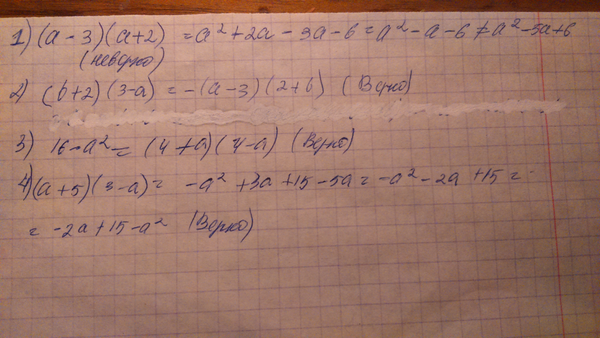 1) (a - 3)(a+2) = a² + 2a - 3a - 6 = a² - a - 6 ≠ a² - 5a + 6
(неверно)
2) (b+2)(3-a) = -(a-3)(2+b) (Верно)
3) 16 - a² = (4 + a)(4 - a) (Верно)
4) (a+5)(3-a) = -a² + 3a + 15 - 5a = -a² - 2a + 15 =
= -2a + 15 - a² (Верно)